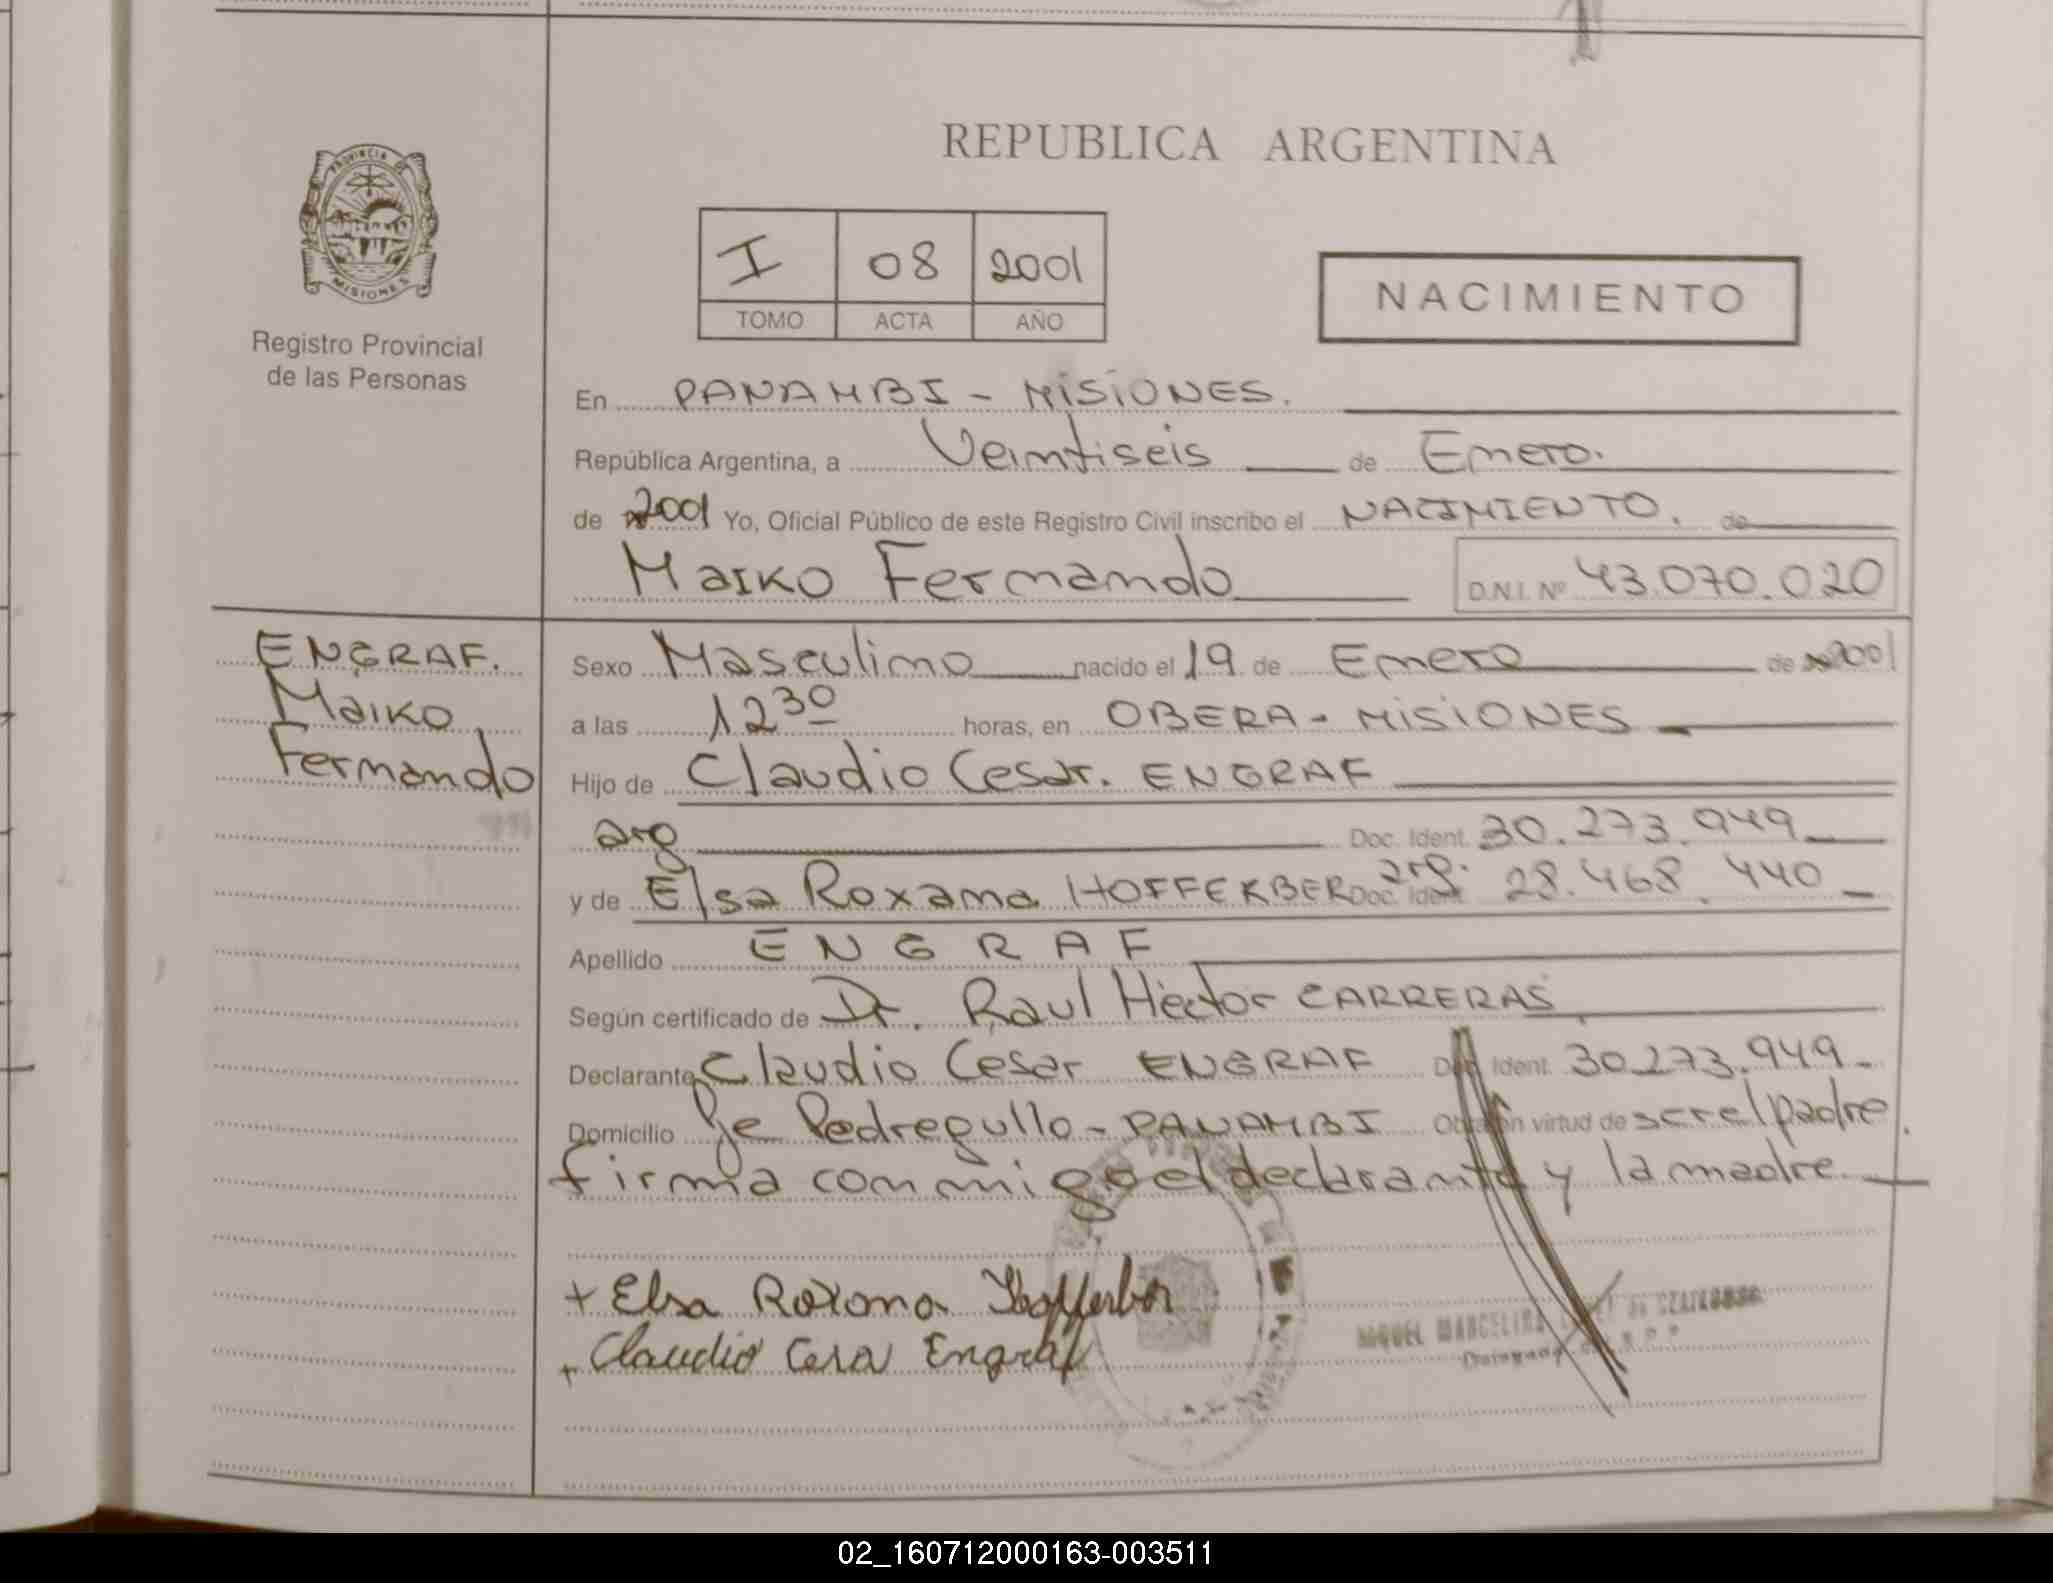 REPUBLICA ARGENTINA
PROVINCIA DE
MISIONES
Registro Provincial
de las Personas
I 08 2001
TOMO ACTA AÑO
NACIMIENTO
En PANAMBI - MISIONES.
República Argentina, a Veintiseis de Enero.
de 2001 Yo, Oficial Público de este Registro Civil inscribo el NACIMIENTO. de
Maiko Fernando D.N.I. Nº 43.070.020
ENGRAF.
Maiko
Fernando
Sexo Masculino nacido el 19 de Enero de 2001
a las 12 30 horas, en OBERA - MISIONES
Hijo de Claudio Cesar. ENGRAF
arg Doc. Ident. 30.273.949
y de Elsa Roxana HOFFERBER arg. Doc. Ident. 28.468.440
Apellido ENGRAF
Según certificado de Dr. Raul Hector CARRERAS
Declarante Claudio Cesar ENGRAF Doc. Ident. 30.273.949
Domicilio Pje Pedregullo - PANAMBI Obra en virtud de ser el padre.
firma conmigo el declarante y la madre
+ Elsa Roxana Hofferber
+ Claudio Cesa Engraf
02_160712000163-003511